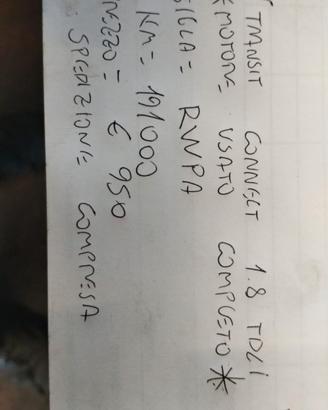 TRANSIT CONNECT 1.8 TDCI
* MOTORE USATO COMPLETO *
SIGLA = RWPA
KM = 191000
PREZZO = € 950
SPEDIZIONE COMPRESA